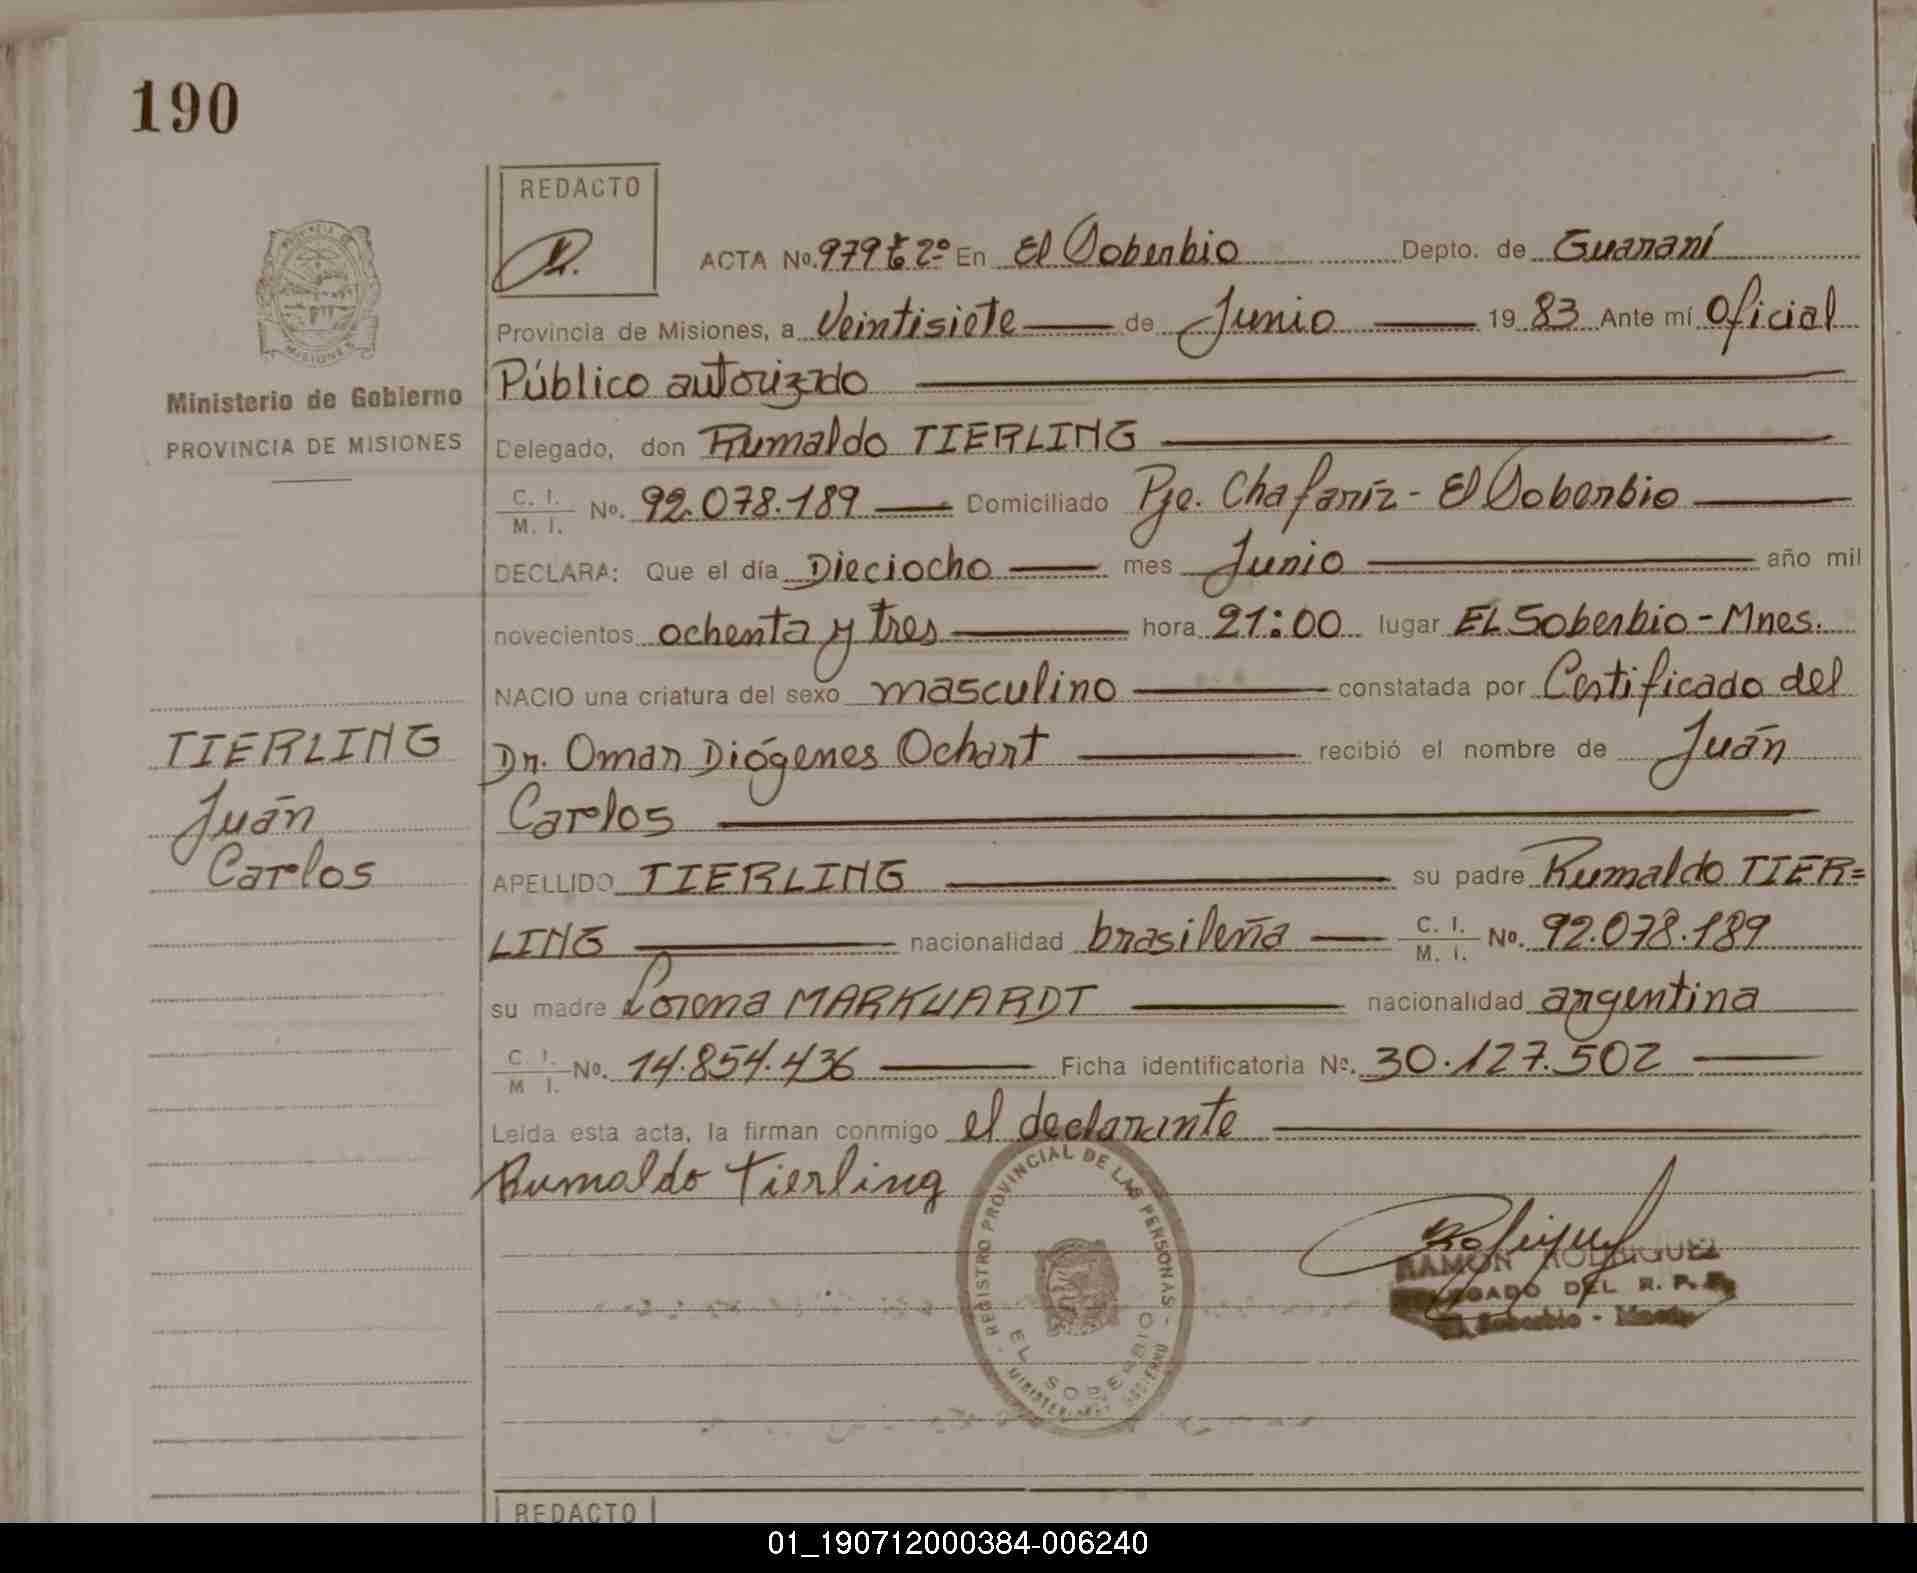 190
REDACTO
PROVINCIA DE
MISIONES
Ministerio de Gobierno
PROVINCIA DE MISIONES
ACTA No. 979 t 2º En El Soberbio Depto. de Guaraní
Provincia de Misiones, a Veintisiete de Junio 19 83 Ante mí Oficial
Público autorizado
Delegado, don Rumaldo TIERLING
C. I.
M. I. No. 92.078.189 Domiciliado Pje. Chafaríz - El Soberbio
DECLARA: Que el día Dieciocho mes Junio año mil
novecientos ochenta y tres hora 21:00 lugar EL Soberbio - Mnes.
NACIO una criatura del sexo masculino constatada por Certificado del
Dr. Omar Diógenes Ochart recibió el nombre de Juán
Carlos
APELLIDO TIERLING su padre Rumaldo TIER=
LING nacionalidad brasileña C. I.
M. I. No. 92.078.189
su madre Lorena MARKUARDT nacionalidad argentina
C. I.
M I. No. 14.854.436 Ficha identificatoria Nº. 30.127.502
Leída esta acta, la firman conmigo el declarante
Rumaldo Tierling
TIERLING
Juán
Carlos
REGISTRO PROVINCIAL DE LAS PERSONAS -
EL SOBERBIO
MINISTERIO GOBIERNO
RAMON RODRIGUEZ
DEL R. P.
Soberbio -
REDACTO
01_190712000384-006240